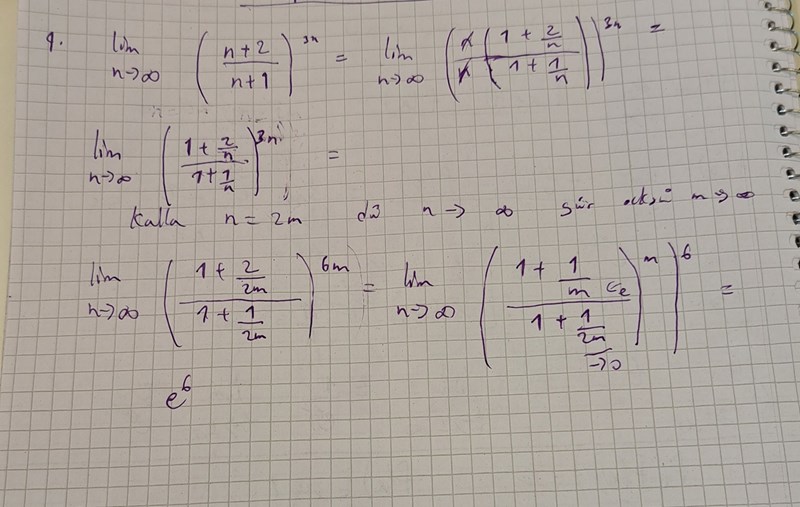 1. lim n→∞ ( (n+2)/(n+1) )^3n = lim n→∞ ( n(1 + 2/n) / n(1 + 1/n) )^3n =
lim n→∞ ( (1 + 2/n) / (1 + 1/n) )^3n =
Kalla n = 2m då n → ∞ går också m → ∞
lim n→∞ ( (1 + 2/2m) / (1 + 1/2m) )^6m = lim n→∞ ( ( (1 + 1/m) / (1 + 1/2m → 0) )^m )^6 =
e^6